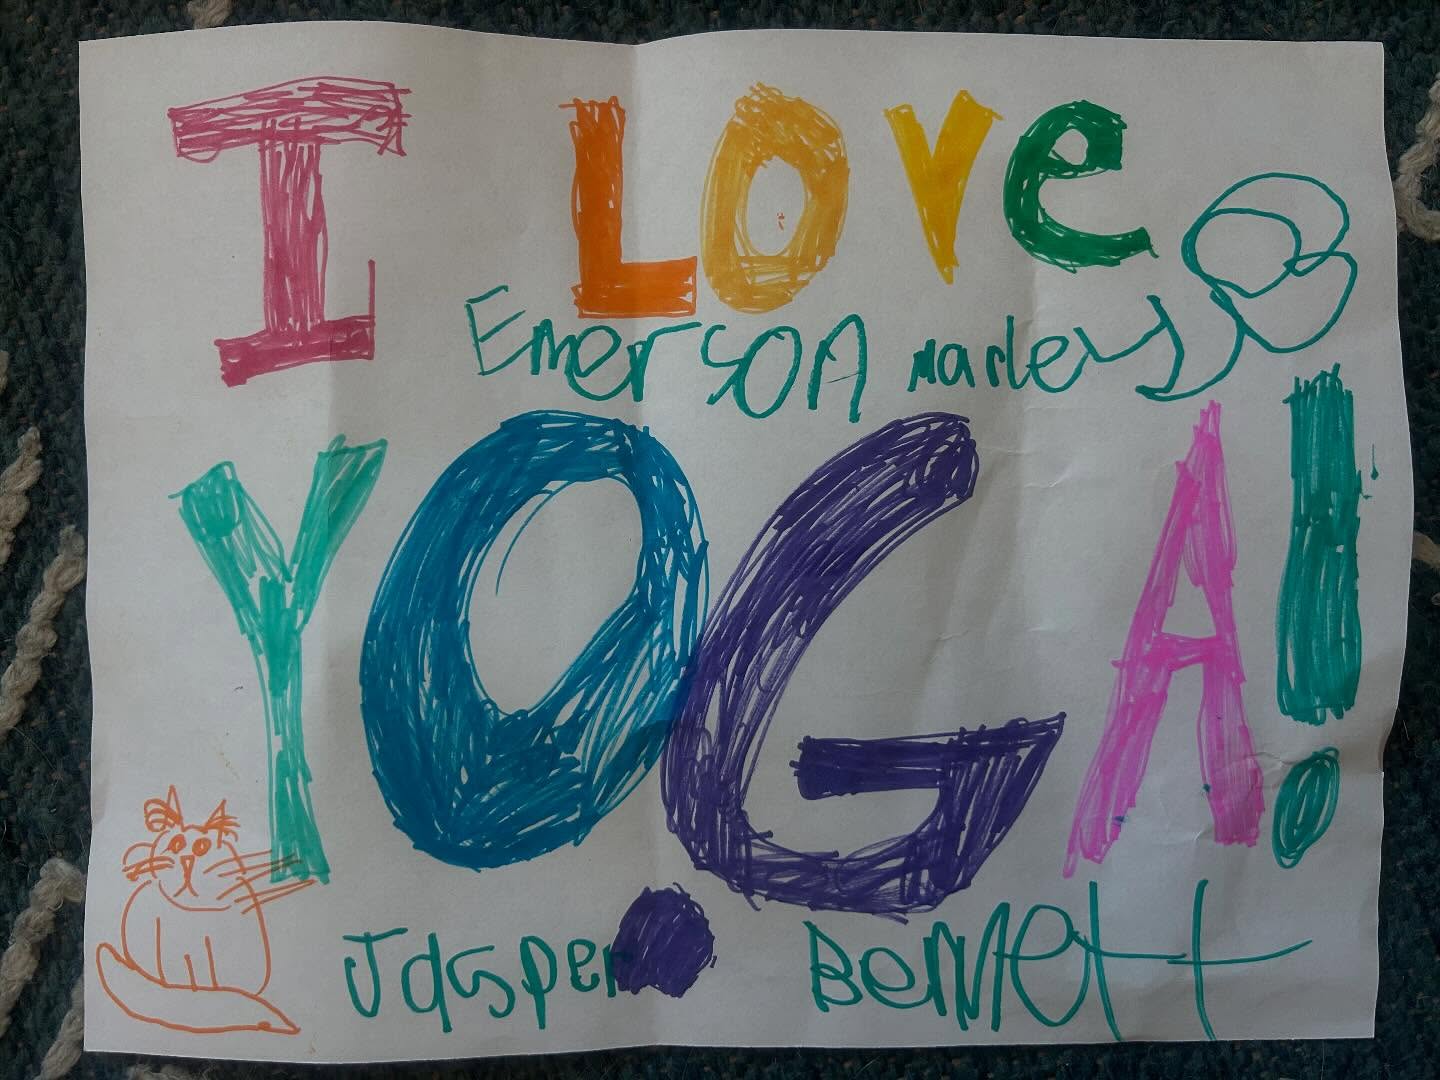 I Love
Emerson marley
YOGA!
Jasper Bennett